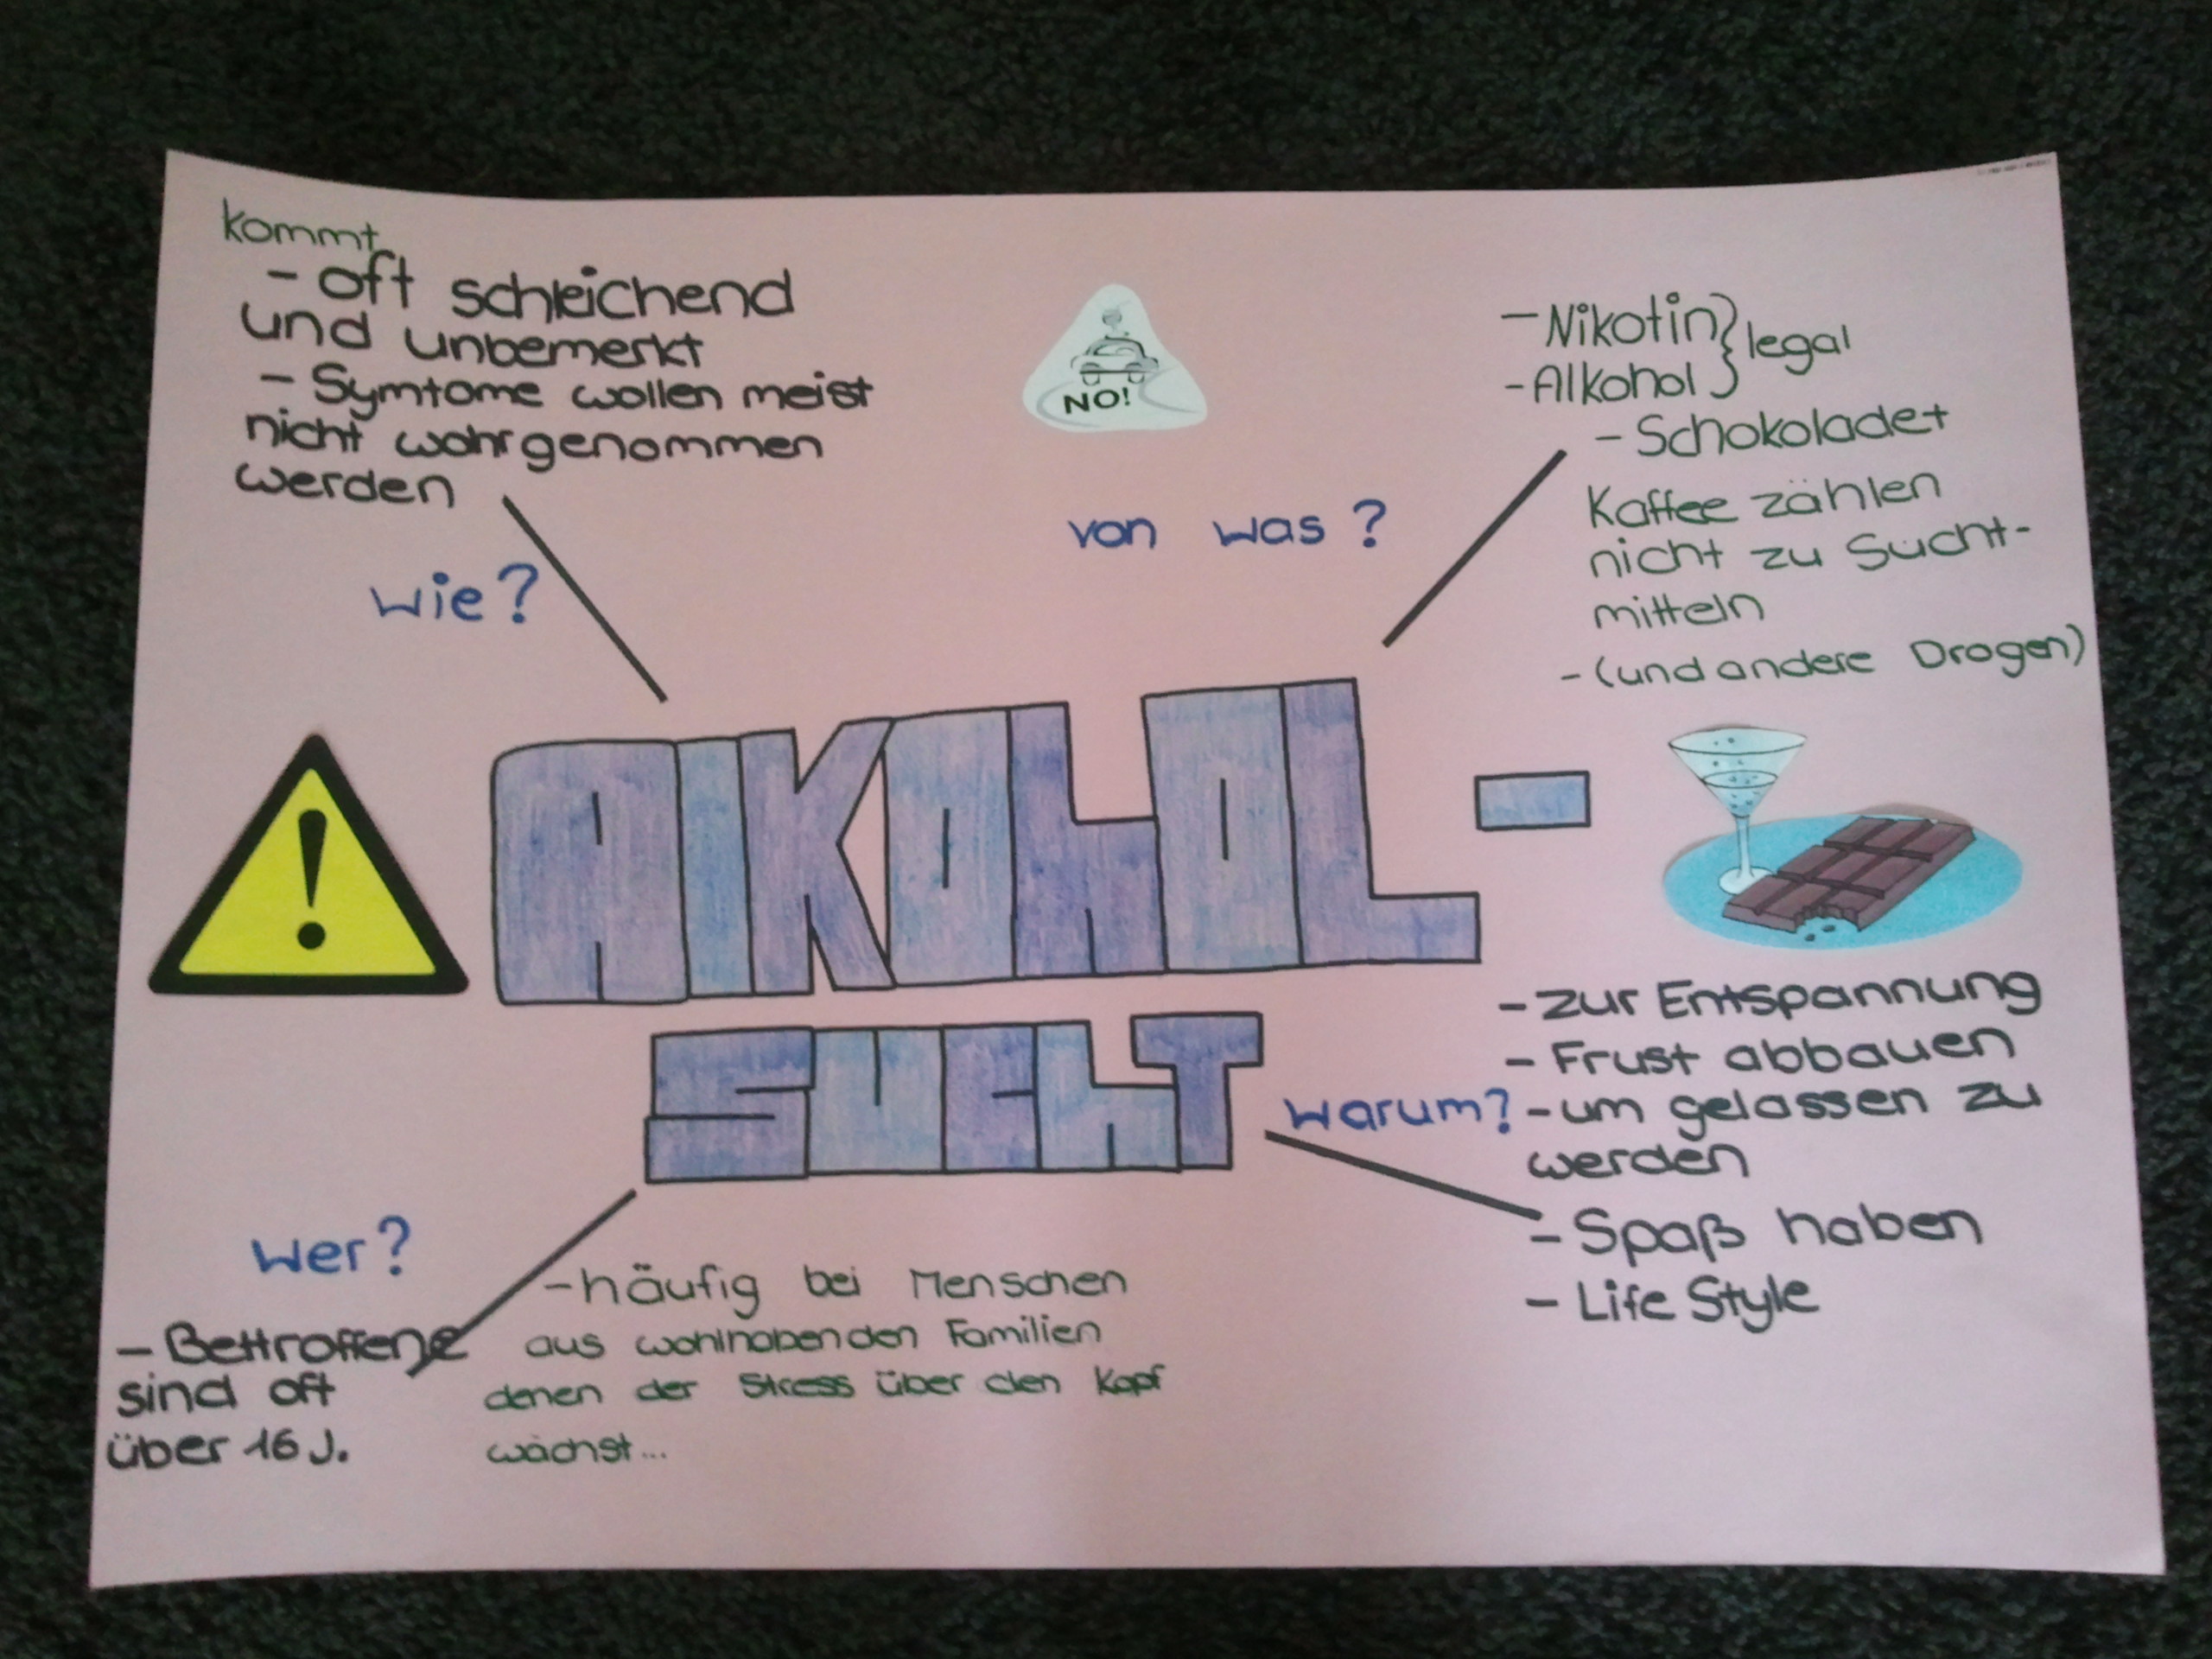 kommt
- oft schleichend
und unbemerkt
- Symtome wollen meist
nicht wahrgenommen
werden
wie?
NO!
von was?
- Nikotin } legal
- Alkohol }
- Schokolade +
Kaffee zählen
nicht zu Sucht-
mitteln
- (und andere Drogen)
AlKOhOL -
SUChT
!
warum?
- zur Entspannung
- Frust abbauen
- um gelassen zu
werden
- Spaß haben
- Life Style
wer?
- Bettroffene
sind oft
über 16 J.
- häufig bei Menschen
aus wohlhabenden Familien
denen der Stress über den Kopf
wächst...